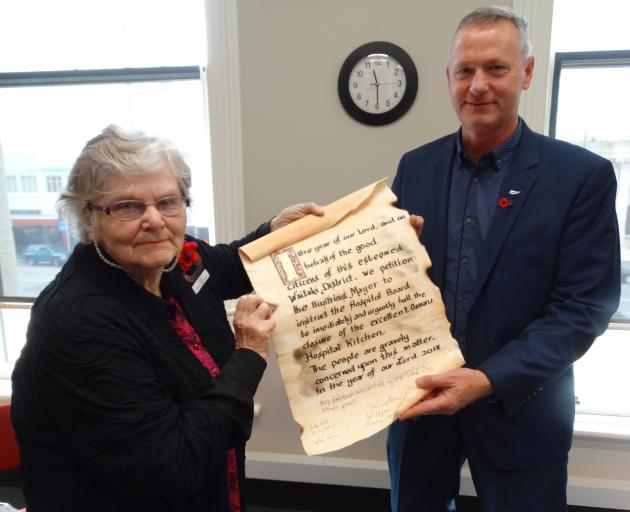 In the year of our Lord, and on
behalf of the good
citizens of this esteemed
Waitaki District, we petition
the Illustrious Mayor to
instruct the Hospital Board
to immediately and urgently halt the
closure of the excellent Oamaru
Hospital Kitchen.
The people are gravely
concerned upon this matter.
In the year of our Lord 2018
This petition presented by the
group.
12
11
1
10
2
9
3
8
4
7
5
6